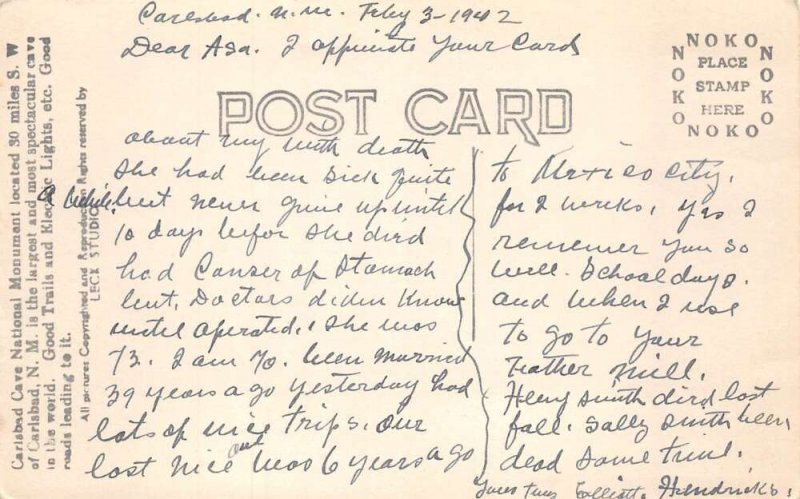 Carlsbad. n.m. Feby 3-1942
Dear Asa. I appriciate your Card
POST CARD
NOKO
NOKO
PLACE
STAMP
HERE
NOKO
NOKO
about my death
She had been Sick quite
a while. but never give up until
10 days befor She died
had Canser of Stomach
but. Doctors diden Know
until operated. She was
73. I am 70. been married
39 years ago yesterday had
lots of nice trips. our
last nice one was 6 years ago
to Mexico City.
for 2 weeks. yes I
remember you so
well. School days.
and when I use
to go to your
Father mill.
Henry Smith died last
fall. Sally Smith been
dead some time.
Yours Truly Elliott. Hendricks.
Carlsbad Cave National Monument located 30 miles S. W
of Carlsbad, N. M. is the largest and most spectacular cave
in the world. Good Trails and Electric Lights, etc. Good
roads leading to it.
All pictures Copyrighted and Reproduction Rights reserved by
LECK STUDIO